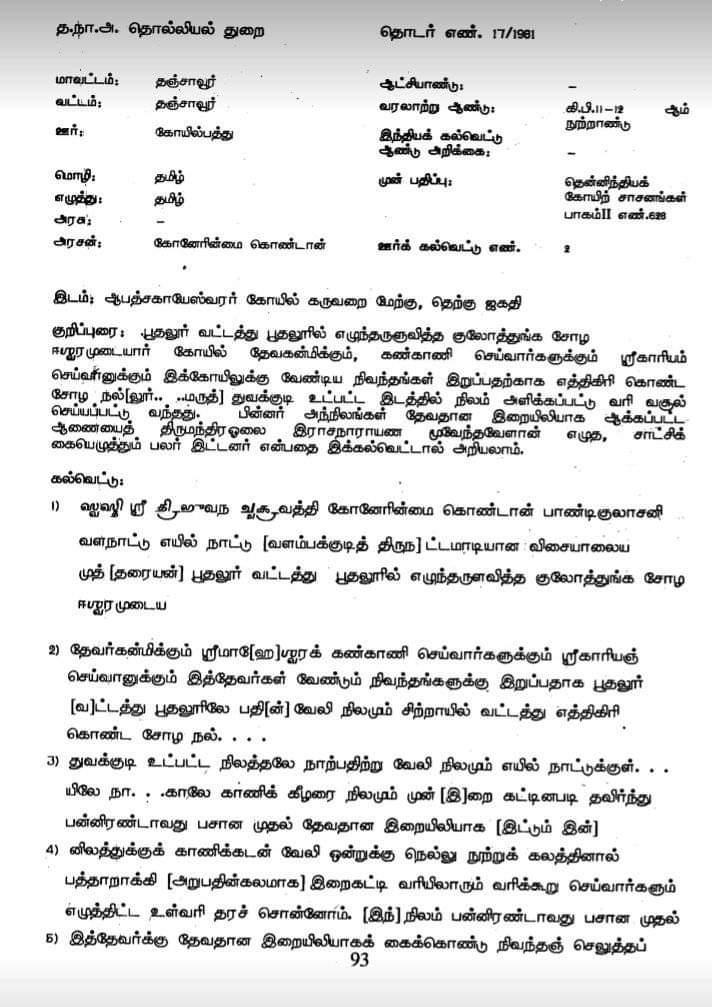 த.நா.அ. தொல்லியல் துறை தொடர் எண். 17/1981
மாவட்டம்: தஞ்சாவூர் ஆட்சியாண்டு: –
வட்டம்: தஞ்சாவூர் வரலாற்று ஆண்டு: கி.பி.11-12 ஆம் நூற்றாண்டு
ஊர்: கோயில்பத்து இந்தியக் கல்வெட்டு ஆண்டு அறிக்கை: –
மொழி: தமிழ் முன் பதிப்பு: தென்னிந்தியக்
எழுத்து: தமிழ் கோயிற் சாசனங்கள்
அரசு: – பாகம்II எண்.628
அரசன்: கோனேரின்மை கொண்டான் ஊர்க் கல்வெட்டு எண். 2
இடம்; ஆபத்சகாயேஸ்வரர் கோயில் கருவறை மேற்கு, தெற்கு ஜகதி
குறிப்புரை: பூதலூர் வட்டத்து பூதலூரில் எழுந்தருளுவித்த குலோத்துங்க சோழ
ஈஶ்வரமுடையார் கோயில் தேவகன்மிக்கும், கண்காணி செய்வார்களுக்கும் ஸ்ரீகாரியம்
செய்வானுக்கும் இக்கோயிலுக்கு வேண்டிய நிவந்தங்கள் இறுப்பதற்காக எத்திகிரி கொண்ட
சோழ நல்[லூர்.. ..மருத்] துவக்குடி உட்பட்ட இடத்தில் நிலம் அளிக்கப்பட்டு வரி வசூல்
செய்யப்பட்டு வந்தது. பின்னர் அந்நிலங்கள் தேவதான இறையிலியாக ஆக்கப்பட்ட
ஆணையைத் திருமந்திரஓலை இராசநாராயண மூவேந்தவேளான் எழுத, சாட்சிக்
கையெழுத்தும் பலர் இட்டனர் என்பதை இக்கல்வெட்டால் அறியலாம்.
கல்வெட்டு:
1) ஸ்வஸ்தி ஸ்ரீ த்ரிபுவந சக்ரவத்தி கோனேரின்மை கொண்டான் பாண்டிகுலாசனி
வளநாட்டு எயில் நாட்டு [வளம்பக்குடித் திருந] ட்டமாடியான விசையாலைய
முத் [தரையன்] பூதலூர் வட்டத்து பூதலூரில் எழுந்தருளவித்த குலோத்துங்க சோழ
ஈஶ்வரமுடைய
2) தேவர்கன்மிக்கும் ஸ்ரீமாஹே[ஹ]ஶ்வரக் கண்காணி செய்வார்களுக்கும் ஸ்ரீகாரியஞ்
செய்வானுக்கும் இத்தேவர்கள் வேண்டும் நிவந்தங்களுக்கு இறுப்பதாக பூதலூர்
[வ]ட்டத்து பூதலூரிலே பதி[ன்] வேலி நிலமும் சிற்றாயில் வட்டத்து எத்திகிரி
கொண்ட சோழ நல். . . .
3) துவக்குடி உட்பட்ட நிலத்தலே நாற்பதிற்று வேலி நிலமும் எயில் நாட்டுக்குள். . .
யிலே நா. . .காலே காணிக் கீழரை நிலமும் முன் [இ]றை கட்டினபடி தவிர்ந்து
பன்னிரண்டாவது பசான முதல் தேவதான இறையிலியாக [இட்டும் இன்]
4) னிலத்துக்குக் காணிக்கடன் வேலி ஒன்றுக்கு நெல்லு நூற்றுக் கலத்தினால்
பத்தாறாக்கி [அறுபதின்கலமாக] இறைகட்டி வரியிலாரும் வரிக்கூறு செய்வார்களும்
எழுத்திட்ட உள்வரி தரச் சொன்னோம். [இந்] நிலம் பன்னிரண்டாவது பசான முதல்
5) இத்தேவர்க்கு தேவதான இறையிலியாகக் கைக்கொண்டு நிவந்தஞ் செலுத்தப்
93